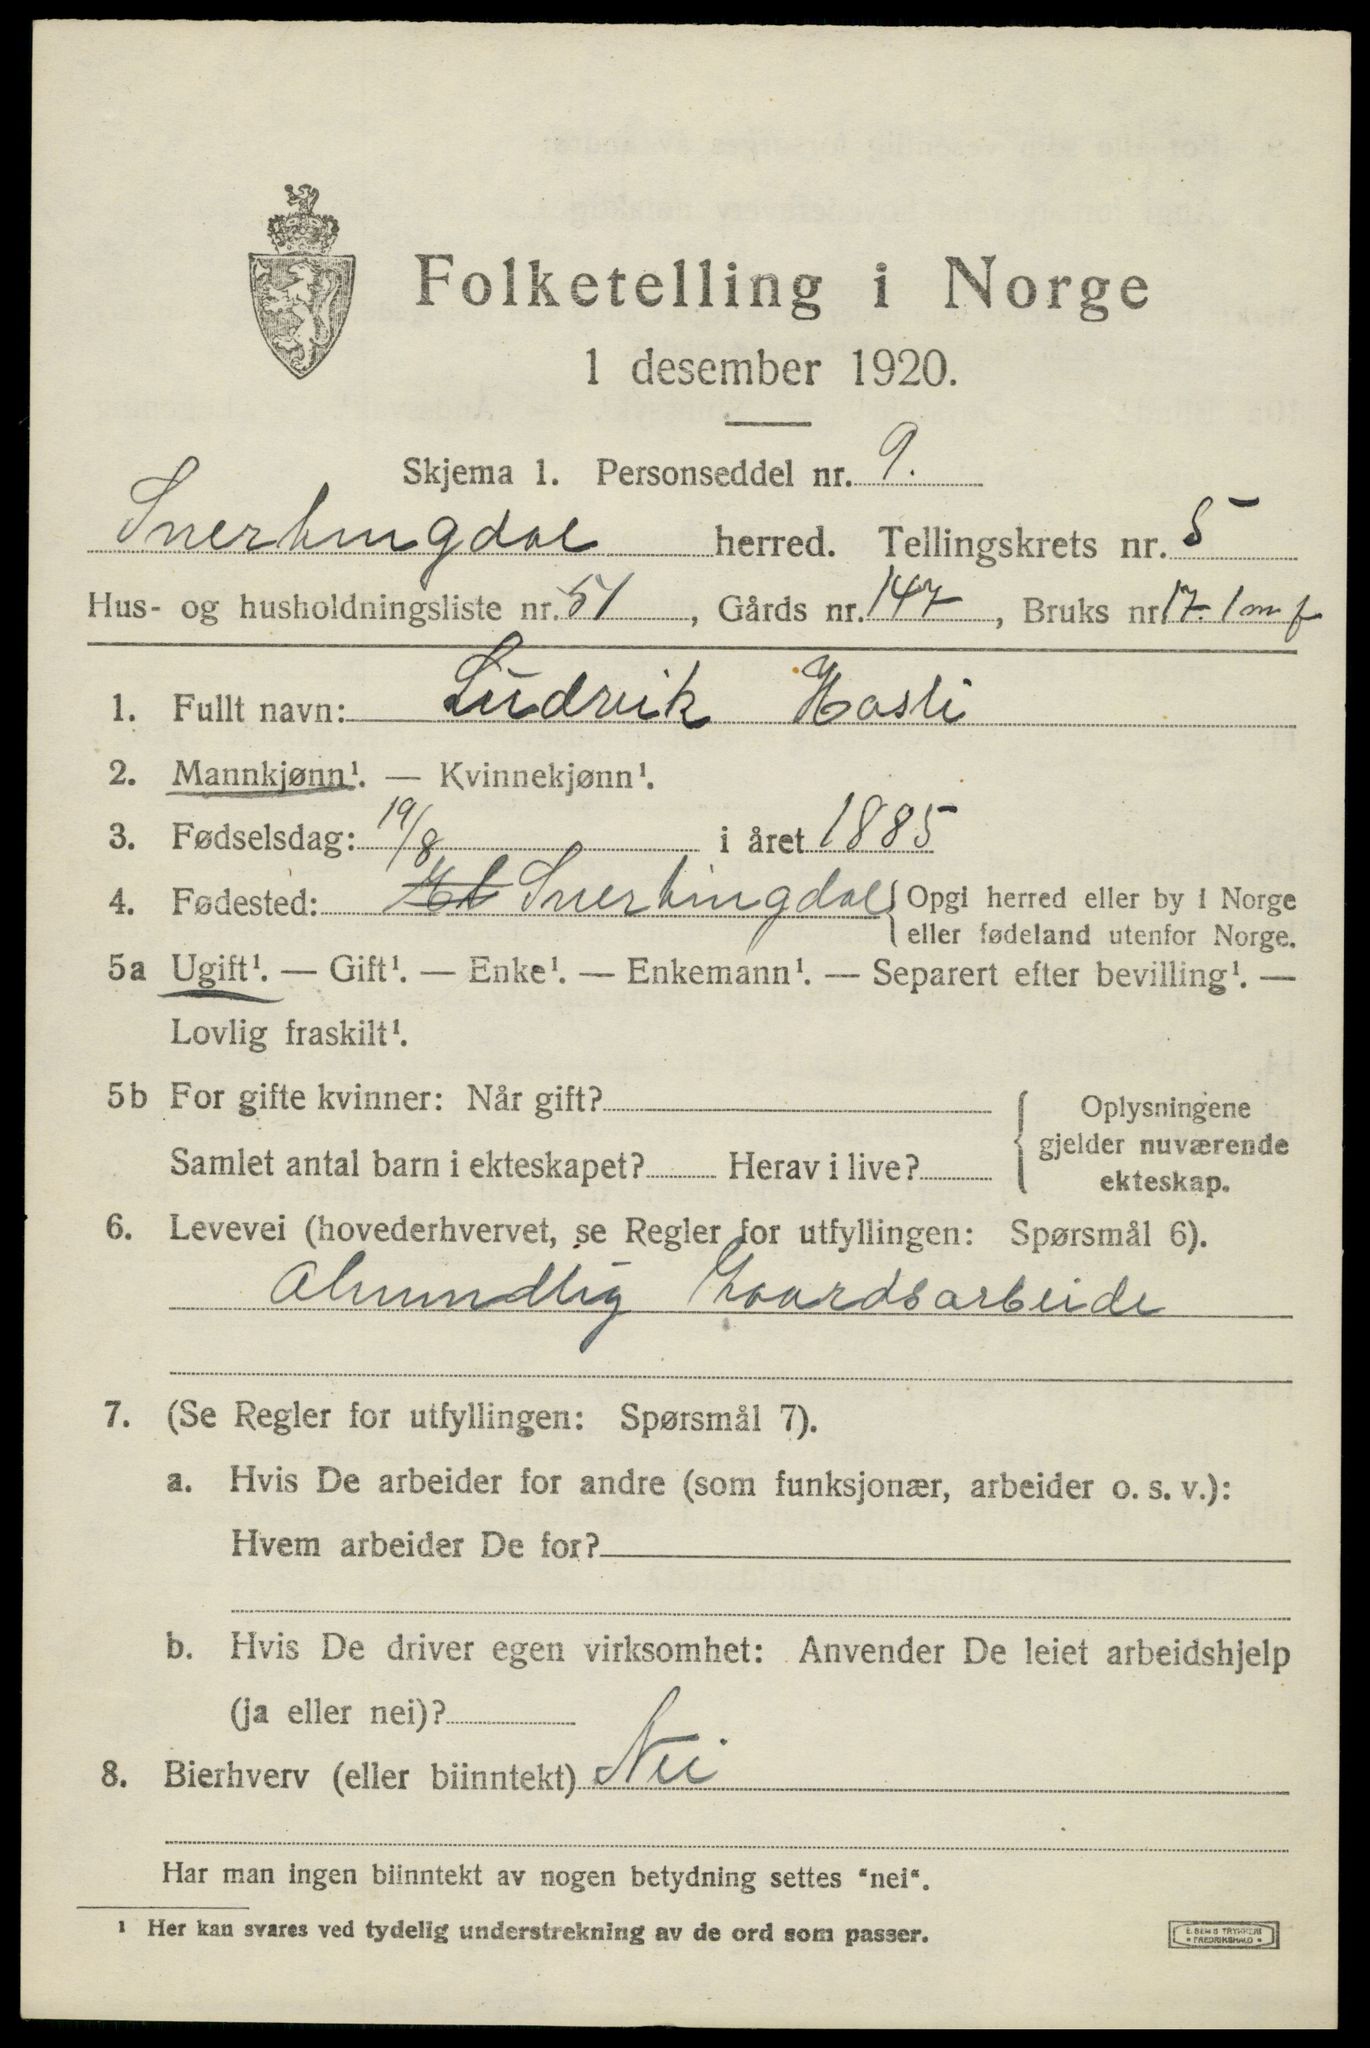 Folketelling i Norge
1 desember 1920.
Skjema 1. Personseddel nr. 9.
Snertingdal herred. Tellingskrets nr. 5
Hus- og husholdningsliste nr. 51, Gårds nr. 147, Bruks nr. 17. 1 m f
1. Fullt navn: Ludvik Hasli
2. Mannkjønn¹. — Kvinnekjønn¹.
3. Fødselsdag: 19/8 i året 1885
4. Fødested: Snertingdal { Opgi herred eller by i Norge
eller fødeland utenfor Norge.
5a Ugift¹. — Gift¹. — Enke¹. — Enkemann¹. — Separert efter bevilling¹. —
Lovlig fraskilt¹.
5b For gifte kvinner: Når gift?
Samlet antal barn i ekteskapet? Herav i live?
{ Oplysningene
gjelder nuværende
ekteskap.
6. Levevei (hovederhvervet, se Regler for utfyllingen: Spørsmål 6).
Almindlig Gaardsarbeide
7. (Se Regler for utfyllingen: Spørsmål 7).
a. Hvis De arbeider for andre (som funksjonær, arbeider o. s. v.):
Hvem arbeider De for?
b. Hvis De driver egen virksomhet: Anvender De leiet arbeidshjelp
(ja eller nei)?
8. Bierhverv (eller biinntekt) Nei
Har man ingen biinntekt av nogen betydning settes "nei".
¹ Her kan svares ved tydelig understrekning av de ord som passer.
E. SEM'S TRYKKERI
• FREDRIKSHALD •